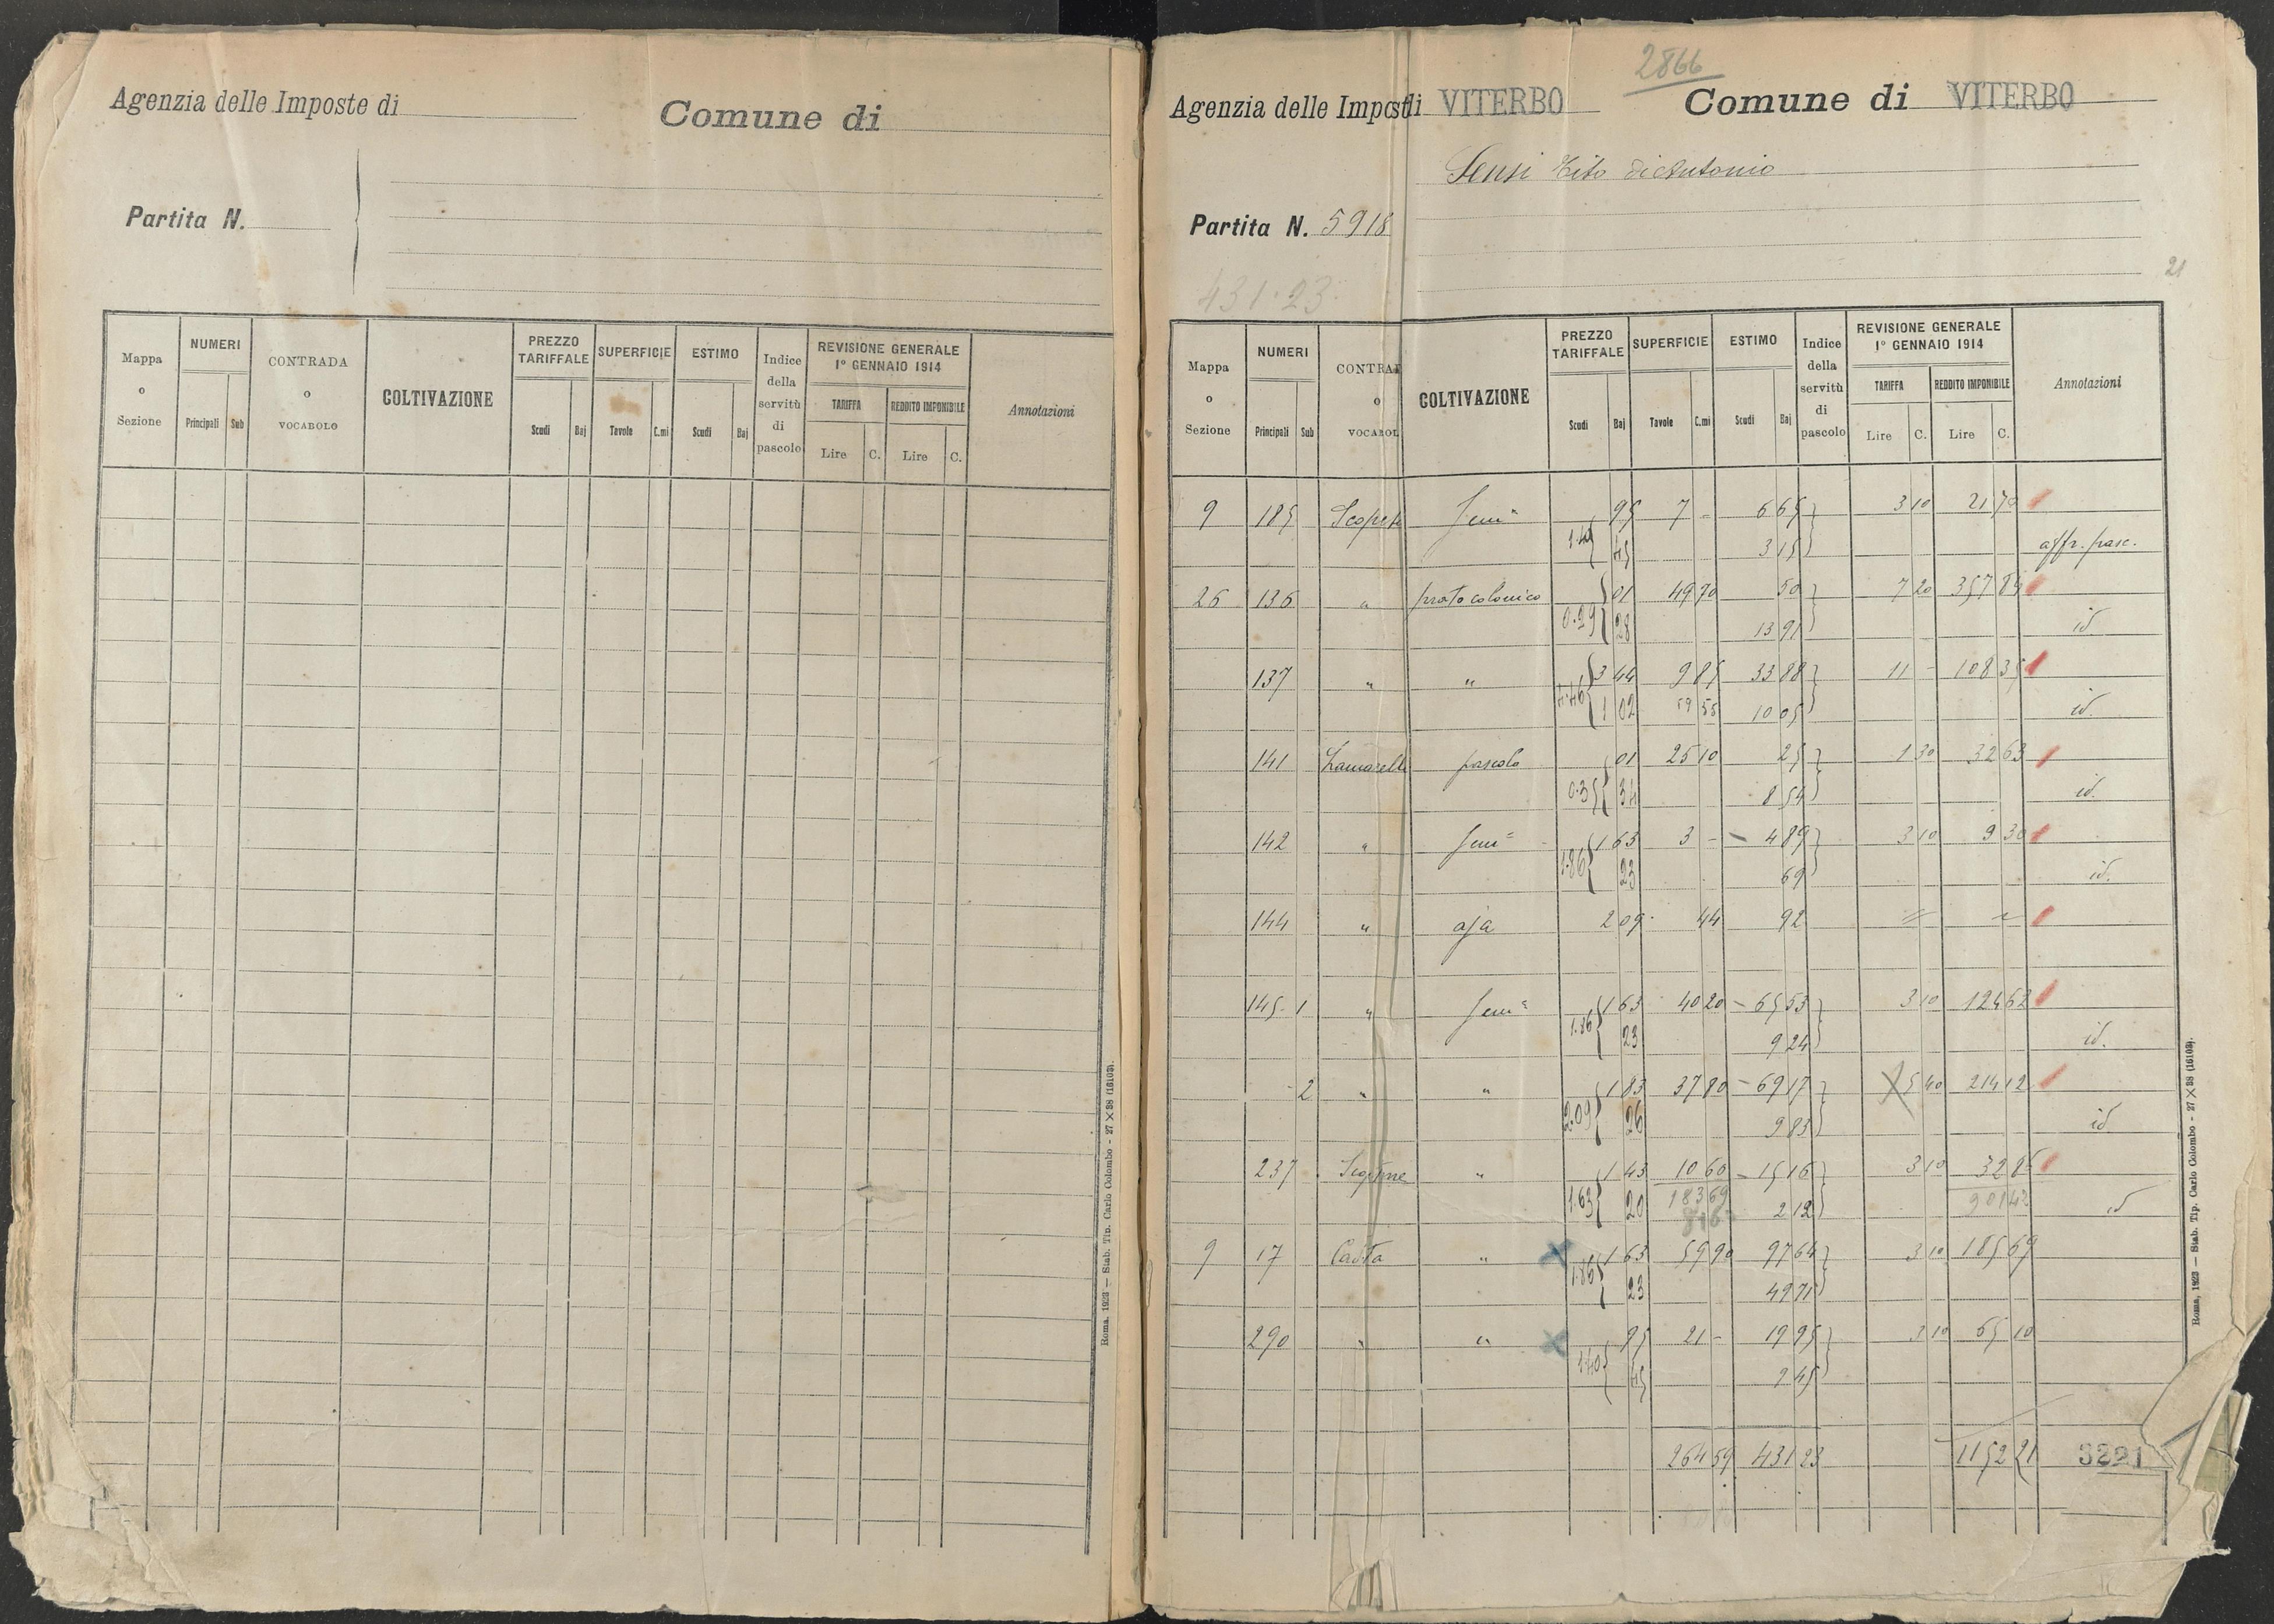 Agenzia delle Imposte di
Comune di
Partita N.
Mappa o Sezione | NUMERI Principali Sub | CONTRADA o VOCABOLO | COLTIVAZIONE | PREZZO TARIFFALE Scudi Baj | SUPERFICIE Tavole C.mi | ESTIMO Scudi Baj | Indice della servitù di pascolo | REVISIONE GENERALE 1° GENNAIO 1914 TARIFFA Lire C. REDDITO IMPONIBILE Lire C. | Annotazioni
Roma, 1923 — Stab. Tip. Carlo Colombo - 27 × 38 (16103).
2866
Agenzia delle Imposte di VITERBO
Comune di VITERBO
Sensi Tito di Antonio
Partita N. 5918
21
431.23
Mappa o Sezione | NUMERI Principali Sub | CONTRA o VOCABOL | COLTIVAZIONE | PREZZO TARIFFALE Scudi Baj | SUPERFICIE Tavole C.mi | ESTIMO Scudi Baj | Indice della servitù di pascolo | REVISIONE GENERALE 1° GENNAIO 1914 TARIFFA Lire C. REDDITO IMPONIBILE Lire C. | Annotazioni
9 185 Scopet Semº 95 7 - 6 65 3 10 21 70
45 3 15 affr. pasc.
26 136 " prato colonico 01 49 70 50 7 20 357 84
0.29 28 13 91 id
137 " " 3 44 9 85 33 88 11 - 108 35
4.46 1 02 59 55 10 05 id.
141 pascolo 01 25 10 25 1 30 32 63
0.35 34 8 54 id.
142 " Semº 1 63 3 - 4 89 3 10 9 30
1.86 23 69 id.
144 " aja 2 09 44 92
145 1 " Semº 1 63 40 20 65 53 3 10 124 62
1.86 23 9 24 id.
2 " " 1 83 37 80 69 17 5 40 214 12
2.09 26 9 83 id
237 " 1 43 10 60 15 16 3 10 32 86
1.63 20 183 69 2 12 901 42 id
9 17 " 1 63 59 90 97 64 3 10 185 69
1.86 23 49 71
290 " " 95 21 - 19 95 3 10 65 10
1.40 45 9 45
264 59 431 23 1152 21 3221
Roma, 1923 — Stab. Tip. Carlo Colombo - 27 × 38 (16103).